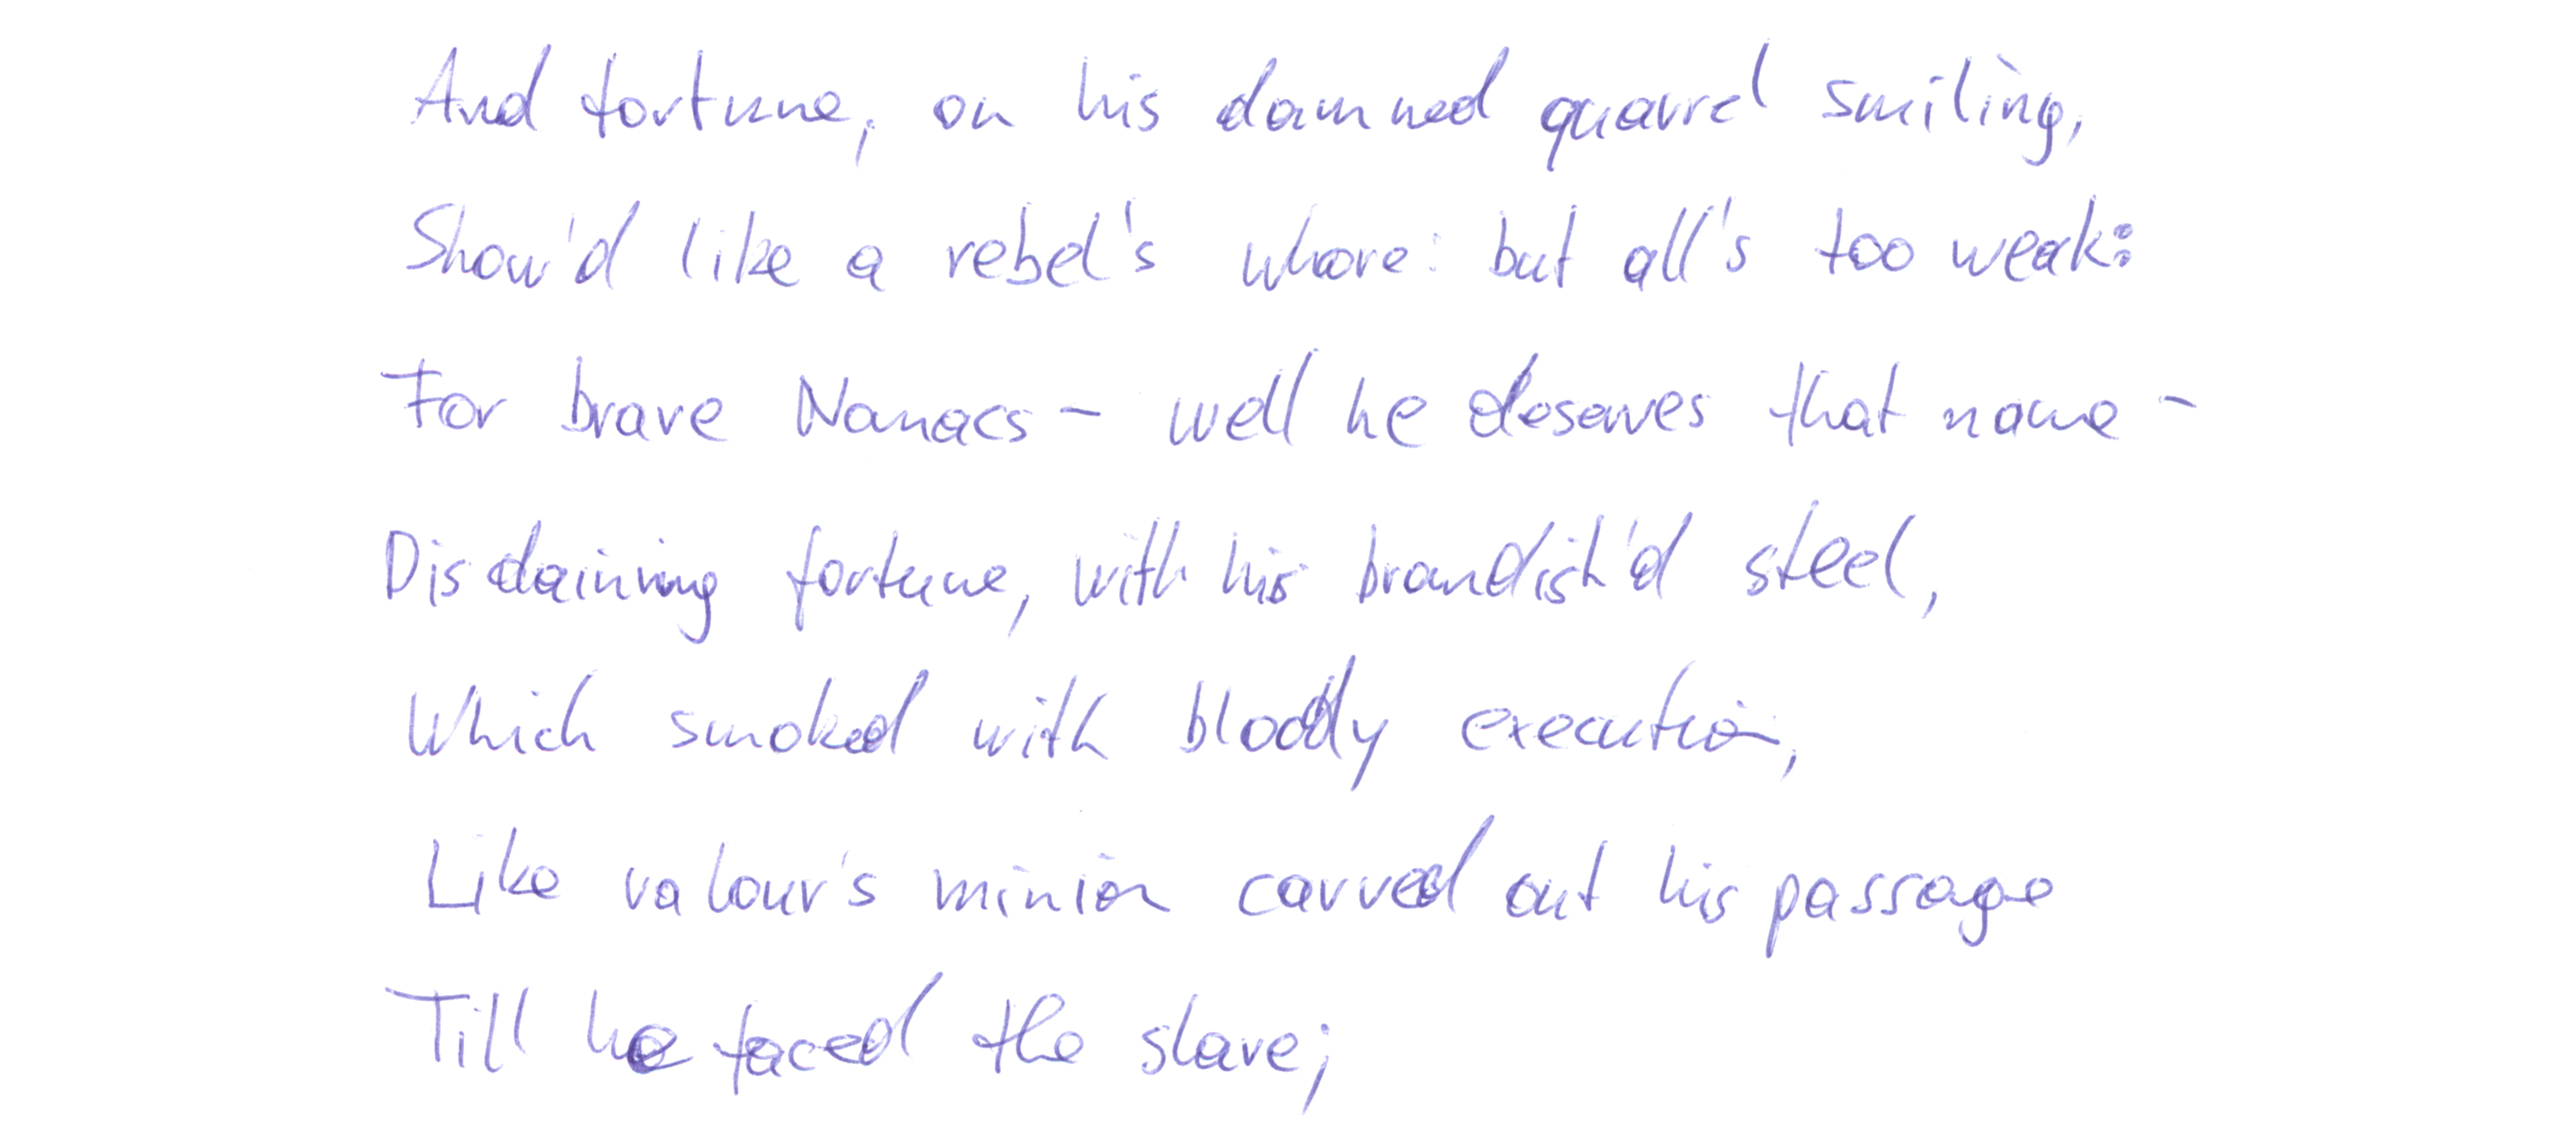 And fortune, on his damned quarrel smiling,
Show'd like a rebel's whore: but all's too weak:
For brave Nanacs - well he deserves that name -
Disdaining fortune, with his brandish'd steel,
Which smoked with bloody execution,
Like valour's minion carved out his passage
Till he faced the slave;